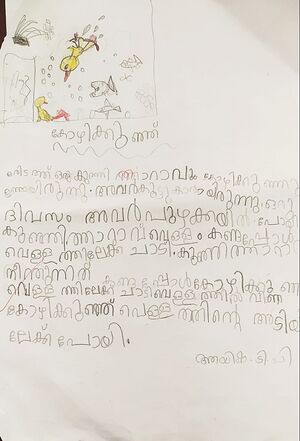 കോഴിക്കുഞ്ഞ്
ഒരിടത്ത് ഒരു കുഞ്ഞി താറാവും കോഴിക്കുഞ്ഞും
ഉണ്ടായിരുന്നു. അവർ കൂട്ടുകാരായിരുന്നു. ഒരു
ദിവസം അവർ പുഴക്കരയിൽ പോയി
കുഞ്ഞിത്താറാവ് വെള്ളം കണ്ടപ്പോൾ
വെള്ളത്തിലേക്ക് ചാടി. കുഞ്ഞിത്താറാ
നീന്തുന്നത്
കണ്ടപ്പോൾ കോഴിക്കുഞ്ഞ്
വെള്ളത്തിലേക്ക് ചാടി വെള്ളത്തിൽ വീണ
കോഴിക്കുഞ്ഞ് വെള്ളത്തിന്റെ അടിയി
ലേക്ക് പോയി.
അയിക. ടി. പി